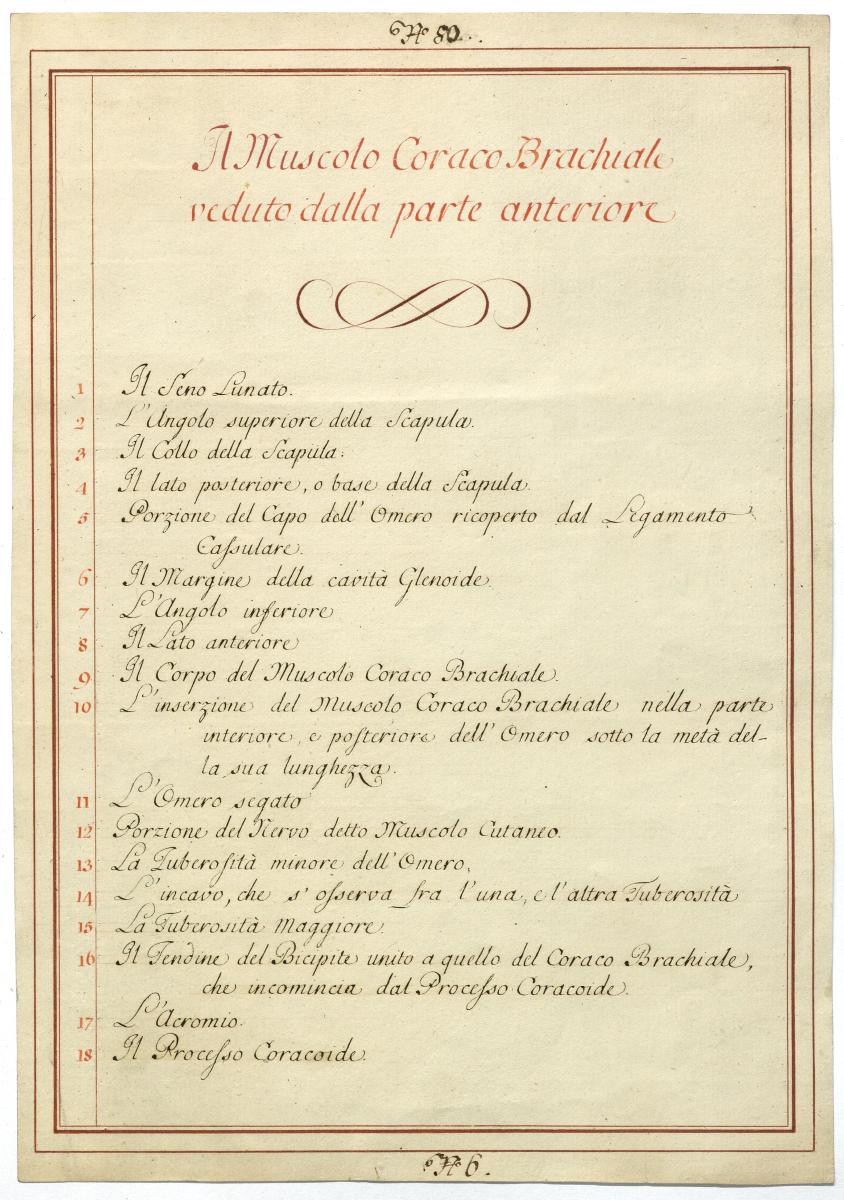 Nº 80.
Il Muscolo Coraco Brachiale
veduto dalla parte anteriore
1 Il Seno Lunato.
2 L'Angolo superiore della Scapula.
3 Il Collo della Scapula.
4 Il lato posteriore, o base della Scapula.
5 Porzione del Capo dell'Omero ricoperto dal Legamento
Caſsulare.
6 Il Margine della cavità Glenoide.
7 L'Angolo inferiore
8 Il Lato anteriore
9 Il Corpo del Muscolo Coraco Brachiale.
10 L'inserzione del Muscolo Coraco Brachiale nella parte
interiore, e poſteriore dell'Omero sotto la metà del-
la sua lunghezza.
11 L'Omero segato
12 Porzione del Nervo detto Muscolo Cutaneo.
13 La Tuberoſità minore dell'Omero.
14 L'incavo, che s'oſserva fra l'una, e l'altra Tuberosità
15 La Tuberosità Maggiore.
16 Il Tendine del Bicipite unito a quello del Coraco Brachiale,
che incomincia dal Proceſso Coracoide.
17 L'Acromio.
18 Il Proceſso Coracoide.
Nº 6.